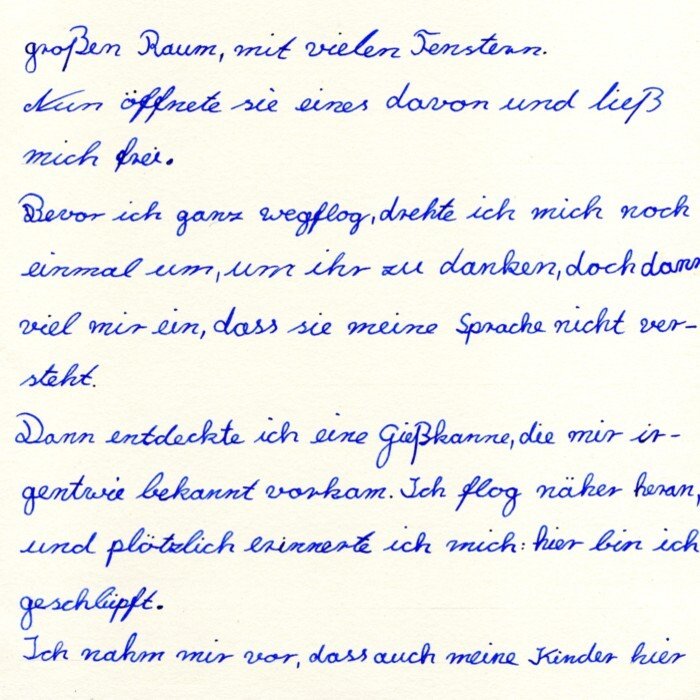 großen Raum, mit vielen Fenstern.
Nun öffnete sie eines davon und ließ
mich frei.
Bevor ich ganz wegflog, drehte ich mich noch
einmal um, um ihr zu danken, doch dann
viel mir ein, dass sie meine Sprache nicht ver-
steht.
Dann entdeckte ich eine Gießkanne, die mir ir-
gentwie bekannt vorkam. Ich flog näher heran,
und plötzlich erinnerte ich mich: hier bin ich
geschlüpft.
Ich nahm mir vor, dass auch meine Kinder hier